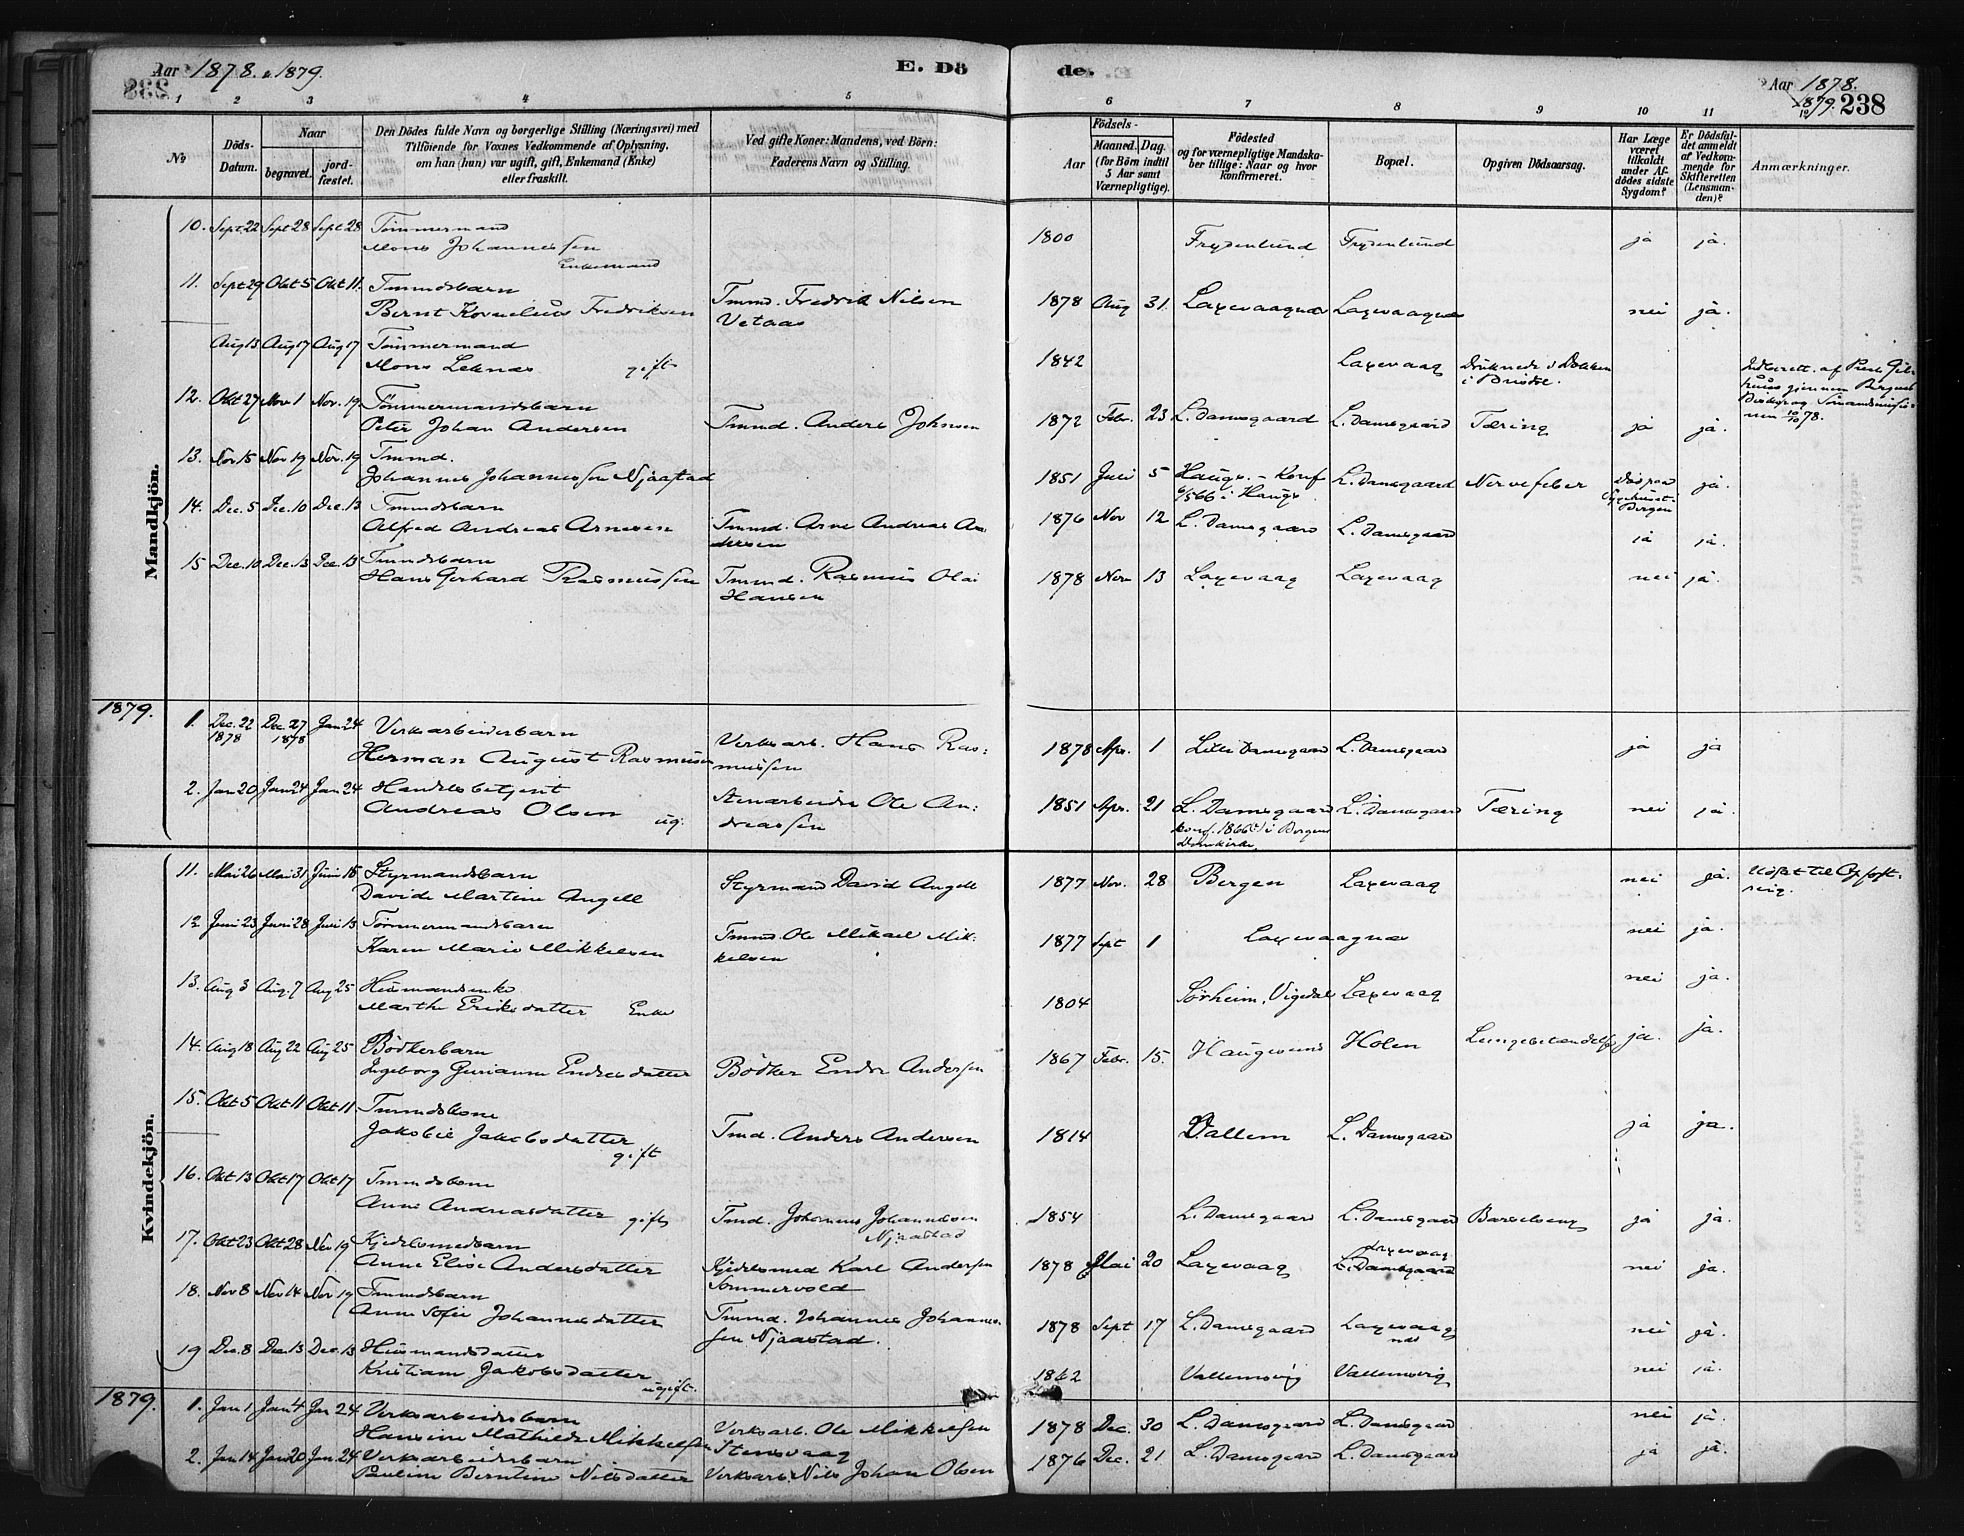 Aar 1878. & 1879.
E. Dö
de.
Aar 1878.
1879.
238
1 2 3 4 5 6 7 8 9 10 11 12
No
Döds-Datum.
Naar
begravet.
jord-fæstet.
Den Dödes fulde Navn og borgerlige Stilling (Næringsvei) med
Tilföiende for Voxnes Vedkommende af Oplysning,
om han (hun) var ugift, gift, Enkemand (Enke)
eller fraskilt.
Ved gifte Koner: Mandens, ved Börn:
Faderens Navn og Stilling.
Födsels-
Aar
Maaned. Dag.
(for Börn indtil
5 Aar samt
Værnepligtige).
Födested
og for værnepligtige Mandska-
ber tillige: Naar og hvor
konfirmeret.
Bopæl.
Opgiven Dödsaarsag.
Har Læge
været
tilkaldt
under Af-
dödes sidste
Sygdom?
Er Dödsfal-
det anmeldt
af Vedkom-
mende for
Skifteretten
(Lensman-
den)?
Anmærkninger.
Mandkjön.
10. Sept. 22 Sept 28 Sept. 28 Tömmermand
Mons Johannessen
Enkemand
1800 Frydenlund Frydenlund ja ja.
11. Sept 29 Okt 5 Okt 11. Tmmdsbarn
Bernt Kornelius Fredriksen
Tmmd. Fredrik Nilsen
Vetaas
1878 Aug 31. Laxevaagnæs Laxevaagnæs nei ja.
Aug 13 Aug 17 Aug 17 Tömmermand
Mons Leknes gift
1842 Laxevaag Druknede i Dokken
12. Okt 27 Nov 1 Nov. 19 Tömmermandsbarn
Peter Johan Andersen
Tmmd. Anders Johnsen
1872 Febr. 23 L. Damsgaard L. Damsgaard Tæring ja ja.
13. Nov 15 Nov 19 Nov. 19 Tmmd.
Johannes Johannessen Njaastad
1851 Juli 5 Haugs. - Konf L. Damsgaard Nervefeber Död paa ja.
Sygehuset
Bergen
14. Dec. 5 Dec. 10 Dec. 13 Tmmdsbarn
Alfred Andreas Arnesen
Tmmd. Arne Andreas An
dersen
1876 Nov 12 L. Damsgaard L. Damsgaard ja ja.
15 Dec. 10 Dec. 13 Dec. 13 Tmmdsbarn
Hans Gerhard Rasmussen
Tmmd. Rasmus Olai
Hansen
1878 Nov 13 Laxevaag Laxevaag nei ja.
1879.
1. Dec. 22 Dec. 27 Jan 24 Verksarbeiderbarn
1878 1878
Herman August Rasmussen
Verksarb. Hans Ras:
mussen
1878 Apr. 1 Lille Damsgaard L. Damsgaard ja ja
2. Jan 20 Jan 24 Jan 24 Handelsbetjent
Andreas Olsen ug.
Stenarbeider Ole An:
dreassen
1851 Apr. 21 L. Damsgaard L. Damsgaard Tæring nei ja.
konf. 1866 i Bergens
Domkirke.
Kvindekjön.
11. Mai 26 Mai 31 Juni 15 Styrmandsbarn
Davide Martine Angell
Styrmand David Angell
1877 Nov. 28 Bergen Laxevaag nei ja.
12 Juni 23 Juni 28 Juli 13 Tömmermandsbarn
Karen Marie Mikkelsen
Tmmd. Ole Mikael Mik:
kelsen
1877 Sept 1 Laxevaagnæs nei ja.
13. Aug 3 Aug. 7 Aug 25 Husmandsenke
Marthe Eriksdatter Enke
1804 Sörheim, Vigedal Laxevaag nei ja.
14. Aug 18 Aug 22 Aug 25 Bödkerbarn
Ingeborg Gurianne Endresdatter
Bödker Endre Andersen
1867 Febr. 15. Haugesund Holen Lungebetændelse ja. ja.
15. Okt 5 Okt 11 Okt 11. Tmmdskone
Jakobie Jakobsdatter
gift
Tmd. Anders Andersen
1814 Vallem L. Damsgaard ja ja.
16. Okt 13 Okt 17 Okt 17 Tmmdskone
Anne Andreasdatter gift
Tmd. Johannes Johannessen
Njaastad
1854 L. Damsgaard L. Damsgaard Barselseng ja ja.
17. Okt 23 Okt 28 Nov 19 Kjedelsmedbarn
Anne Elise Andersdatter
Kjedelsmed Karl Andersen
Sommervold
1878 Mai 20 Laxevaag Laxevaag nei ja.
L. Damsgaard
18. Nov 8 Nov 14 Nov 19 Tmmdsbarn
Anne Sofie Johannesdatter
Tmmd. Johannes Johannes-
sen Njaastad.
1878 Sept 17 L. Damsgaard Laxevaag nei ja.
næs
19 Dec. 8 Dec. 13 Dec. 13 Husmandsdatter
Kristiane Jakobsdatter
ugift.
1862 Vallemsvig Vallemsvig nei ja.
1879.
1. Jan 1 Jan 4 Jan 24 Verksarbeidsbarn
Hansine Mathilde Mikkelsen
Verksarb. Ole Mikkelsen
Stensvaag
1878 Dec. 30 L. Damsgaard L. Damsgaard nei ja.
2. Jan 14 Jan 20 Jan. 24 Verksarbeidsbarn
Pauline Berntine Nilsdatter
Verksarb. Nils Johan Olsen
1876 Dec. 21 L. Damsgaard L. Damsgaard ja ja.